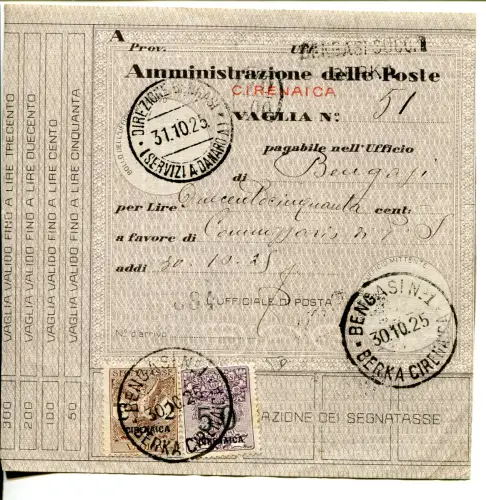 A
Prov. Uff.
BENGASI SUCC. 1
BERKA
Amministrazione delle Poste
CIRENAICA
VAGLIA Nº. 51
DIREZIONE BENGASI
31.10.25
(SERVIZI A DANARO)
pagabile nell'Ufficio
di Bengasi
per Lire Duecentocinquanta cent:
a favore di Commissario di P S
addi 30.10.25
384
UFFICIALE DI POSTA
Nº d'arrivo
BENGASI N·1
30.10.25
BERKA CIRENAICA
BENGASI N·1
30.10.25
BERKA CIRENAICA
SEGNATASSE
CIRENAICA
50
CIRENAICA
AZIONE DEI SEGNATASSE
VAGLIA VALIDO FINO A LIRE TRECENTO
VAGLIA VALIDO FINO A LIRE DUECENTO
VAGLIA VALIDO FINO A LIRE CENTO
VAGLIA VALIDO FINO A LIRE CINQUANTA
300
200
100
50